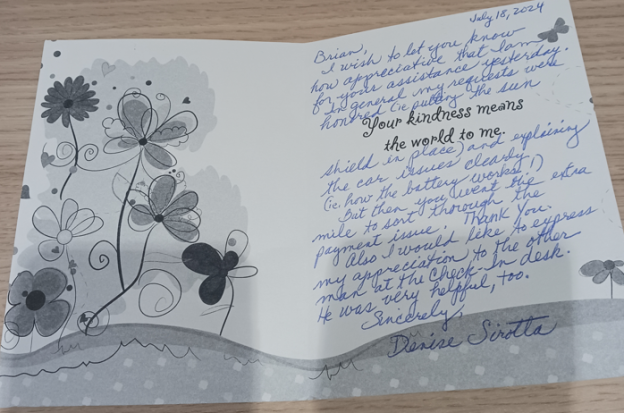 July 18, 2024
Brian,
I wish to let you know
how appreciative that I am
for your assistance yesterday.
In general my requests were
honored (ie putting the sun
Your kindness means
the world to me.
shield in place) and explaining
the car issues clearly
(ie. how the battery works!)
But then you went the extra
mile to sort through the
payment issue. Thank you.
Also I would like to express
my appreciation to the other
man at the Check-In desk.
He was very helpful, too.
Sincerely,
Denise Sirotta